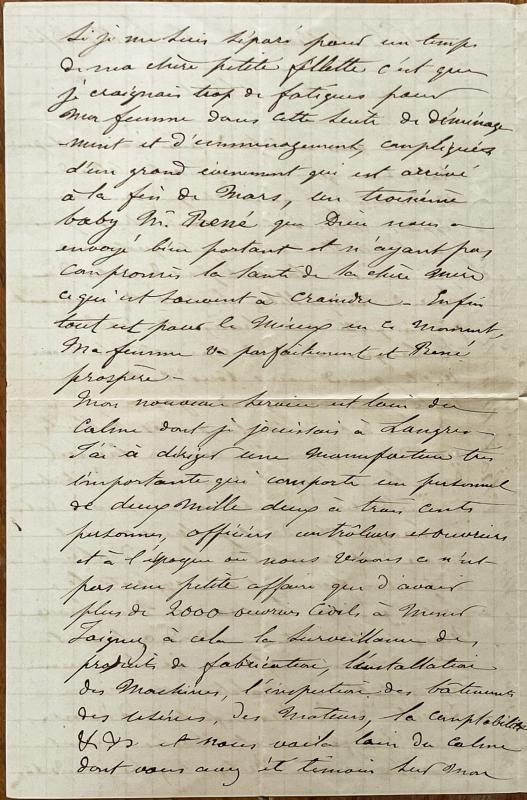 Si je me suis séparé pour un temps
de ma chère petite fillette c'est que
je craignais trop de fatigues pour
ma femme dans cette suite de déménage
ment et d'emménagement, compliqués
d'un grand évènement qui est arrivé
à la fin de Mars, un troisième
baby Mr René que Dieu nous a
envoyé bien portant et n'ayant pas
compromis la santé de la chère mère
ce qui est souvent à craindre - Enfin
tout est pour le mieux en ce moment,
Ma femme va parfaitement et René
prospère -
Mon nouveau service est loin du
calme dont je jouissais à Langres -
J'ai à diriger une manufacture très
importante qui comporte un personnel
de deux mille deux à trois cents
personnes, officiers contrôleurs et ouvriers
et à l'époque où nous vivons ce n'est
pas une petite affaire que d'avoir
plus de 2000 ouvriers civils à mener
Joignez à cela la surveillance des
produits de fabrication, l'installation
des Machines, l'inspection des bâtiments
des usines, des Moteurs, la comptabilité
&&& et nous voilà loin du calme
dont vous avez été témoin sur mon